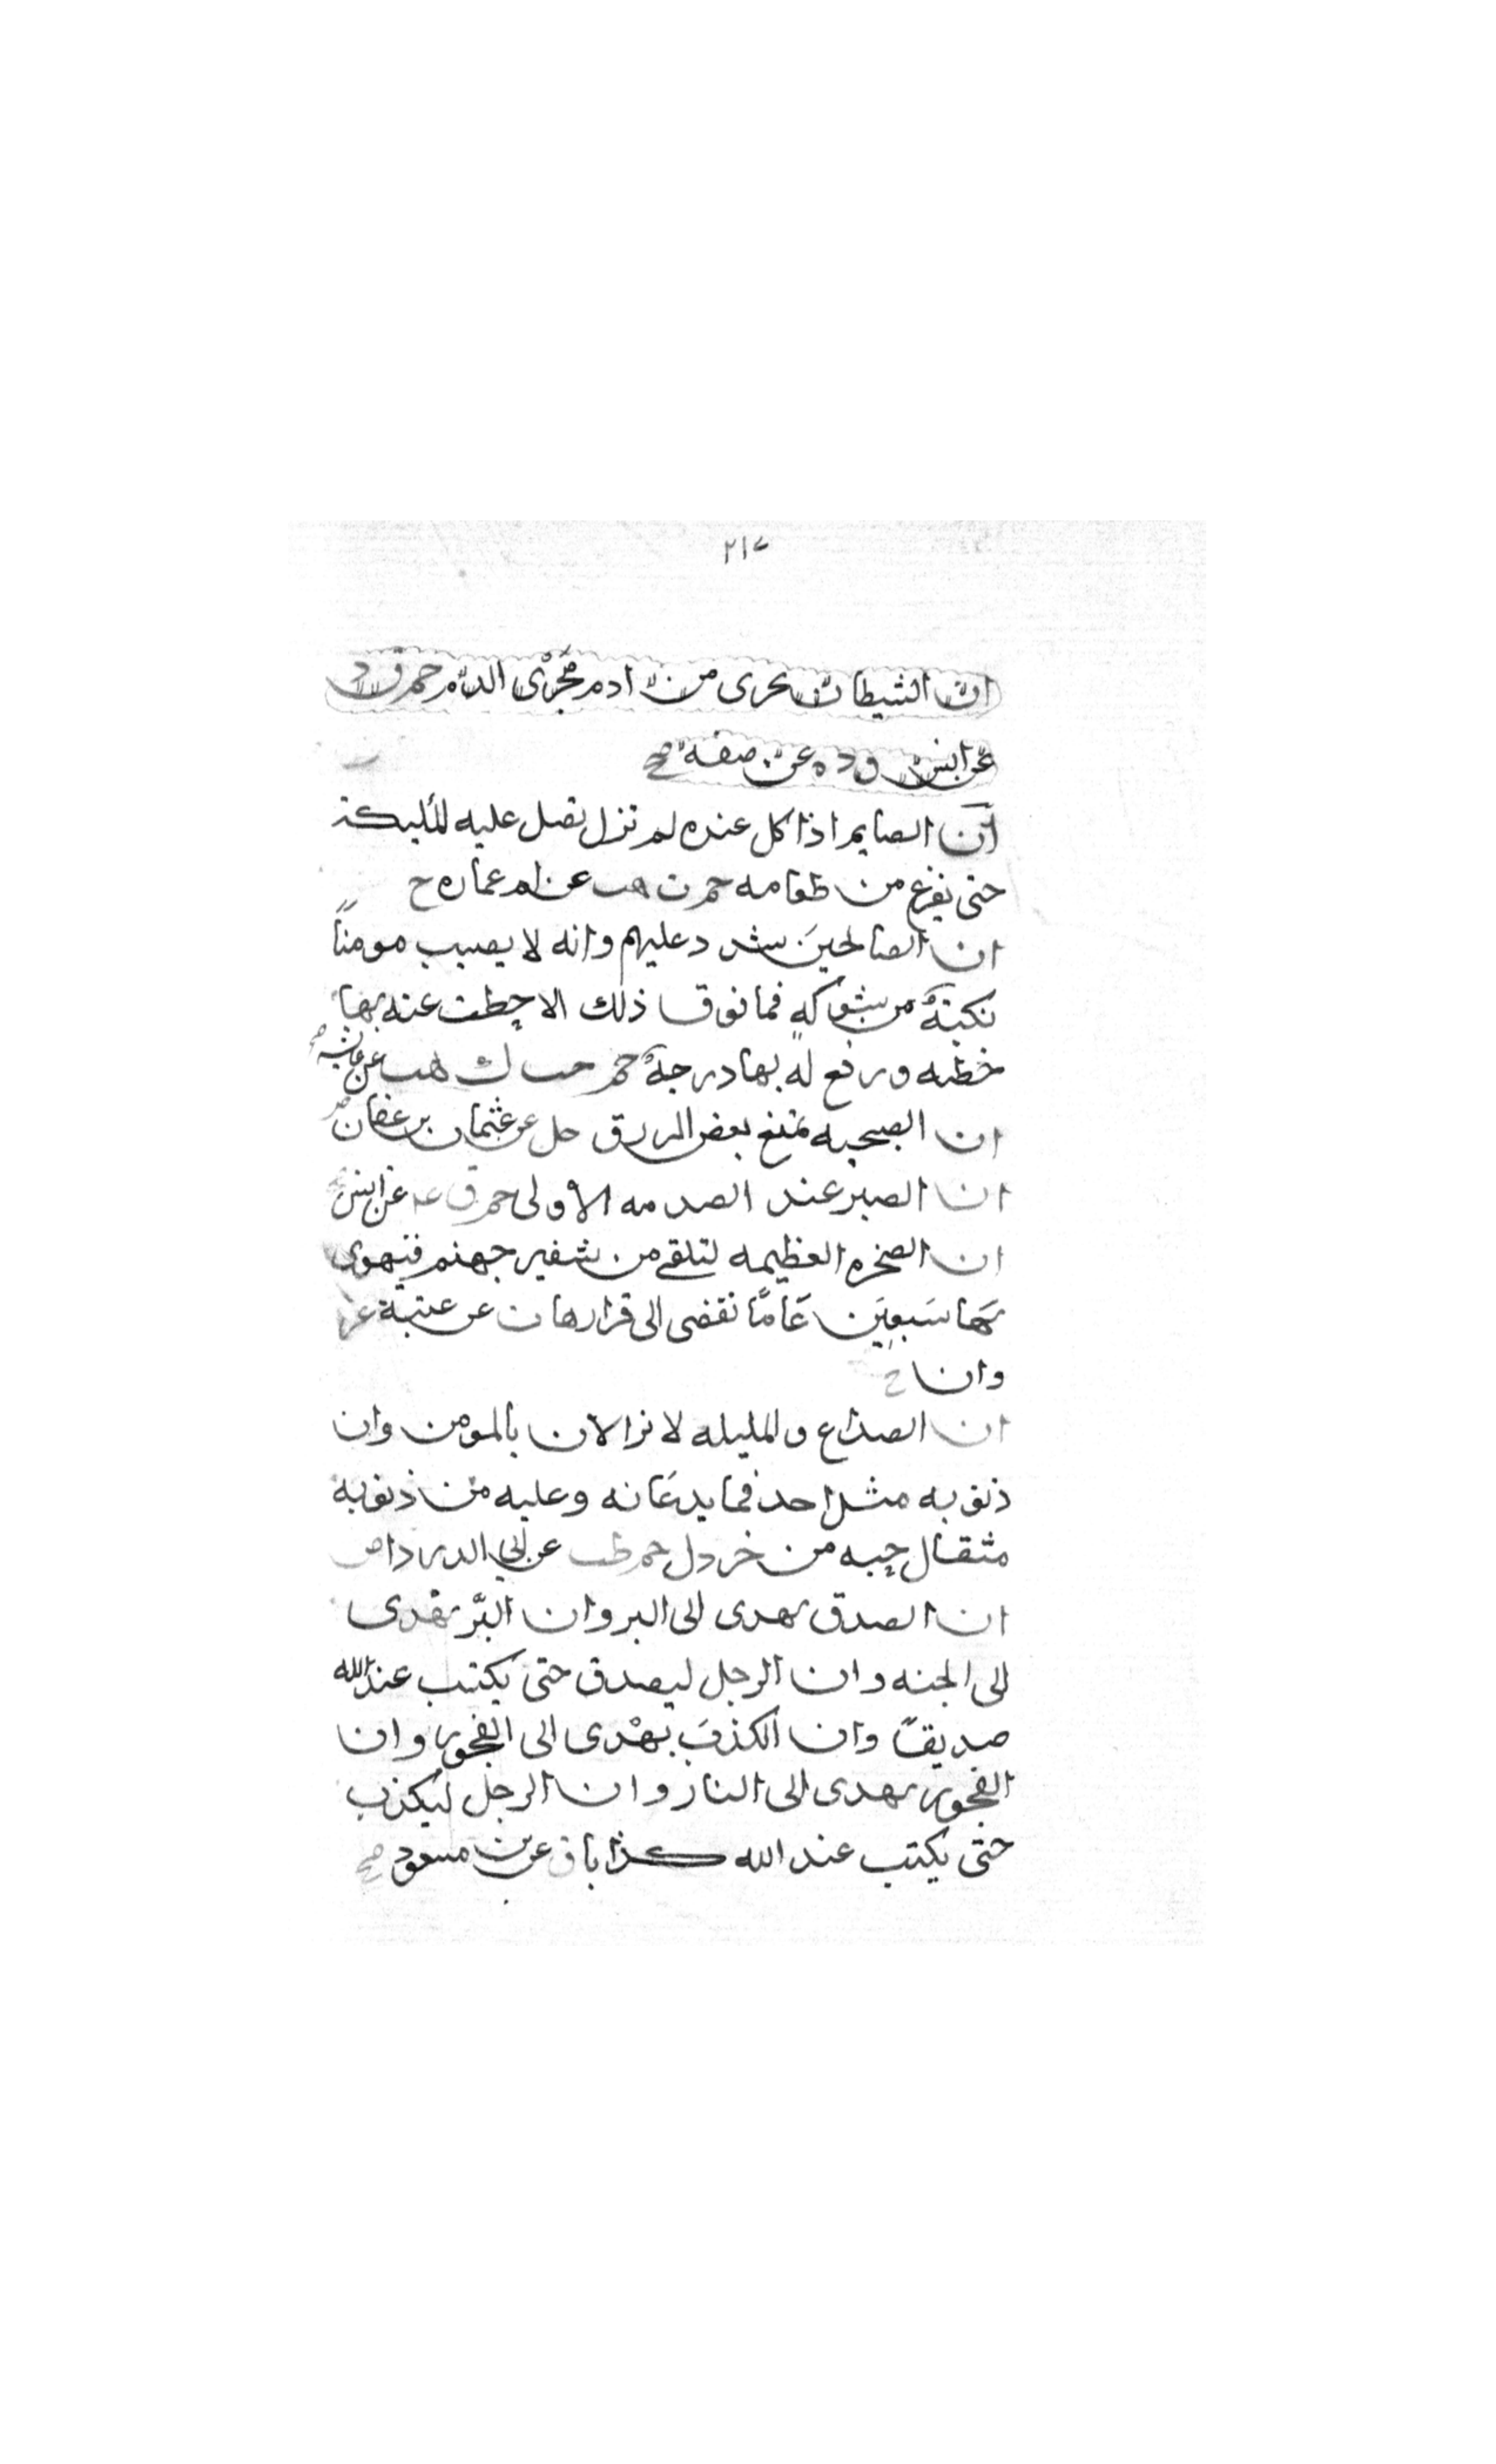 ٢١٧
ان الشيطان يجرى من ادم مَجْرَى الدم حم ق د
عن انس ق د ه عن صفيه صح
ان الصايم اذا اكل عنده لم تزل تصل عليه الملىكة
حتى يفرغ من طعامه حم ت هب عن ام عماره ح
ان الصالحينَ يشدد عليهم وانه لا يصيب مومنًا
نكبةٌ من شوكهٍ فما فوق ذلك الا حطت عنه بها
خطيه ورفع له بها درجةٌ حم حب ك هب عن عايشه صح
ان الصبحه تمنع بعض الرزق حل عن عثمان بن عفان
ان الصبر عند الصدمه الاولى حم ق عن انس
ان الصخره العظيمه لتلقى من شفير جهنم فتهوى
بها سَبعِينَ عَامًا تفضى الى قرارها ت عن عتبة
وان ح
ان الصداع والمليله لا نزالان بالمومن وان
ذنوبه مثل احد فما يدعَانه وعليه من ذنوبه
مثقال حبه من خردل حم طب عن ابى الدردا ض
ان الصدق يهدى الى البر وان البرّ يهدى
الى الجنه وان الرجل ليصدق حتى يكتب عند الله
صديقًا وان الكذبَ يهْدى الى الفجور وان
الفجور يهدى الى النار وان الرجل ليكذب
حتى يكتب عند الله كذابا ق عن بن مسعود صح